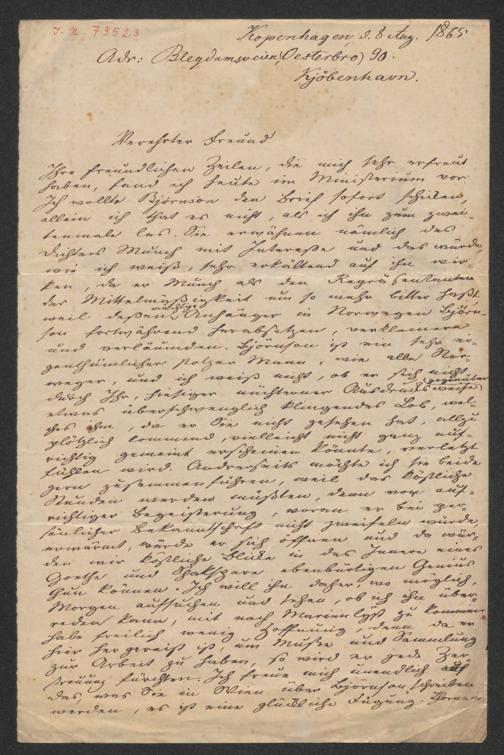 J. N. 73523
Kopenhagen, d. 8 Aug. 1865
Adr: Blegdamsveien (Oesterbro) 90.
Kjöbenhavn.
Verehrter Freund
Ihre freundlichen Zeilen, die mich sehr erfreut
haben, fand ich heute im Ministerium vor.
Ich wollte Björnson den Brief sofort schicken,
allein ich that es nicht, als ich ihn zum zwei-
tenmale las. Sie erwähnen nämlich des
Dichters Munch mit Interesse und das würde,
wie ich weiß, sehr erkältend auf ihn wir-
ken, da er Munch als den Repräsentanten
der Mittelmäßigkeit um so mehr bitter haßt,
weil dessen Anhänger in Norwegen Björn-
son fortwährend herabsetzen, verkleinern
und verläumden. Björnson ist ein sehr ei-
genthümlicher stolzer Mann, wie alle Nor-
weger, und ich weiß nicht, ob er sich nicht
durch Ihr, hiesiger nüchterner Ausdrucksweise gegenüber
etwas überschwenglich klingendes Lob, wel-
ches ihm, da er Sie nicht gesehen hat, allzu
plötzlich kommend, vielleicht nicht ganz auf-
richtig gemeint erscheinen könnte, verletzt
fühlen wird. Andrerseits möchte ich Sie beide
gern zusammenführen, weil das köstliche
Stunden werden müßten, denn von auf-
richtiger Begeisterung, woran er bei per-
sönlicher Bekanntschaft nicht zweifeln würde,
erwärmt, würde er sich öffnen und da wür-
den wir köstliche Blicke in das Innere eines
Goethe und Shakspere ebenbürtigen Genius
thun können. Ich will ihn daher, wo möglich,
Morgen aufsuchen und sehen, ob ich ihn über-
reden kann, mit nach Marienlyst zu kommen
habe freilich wenig Hoffnung, denn da er
hier hergereist ist, um Muße und Sammlung
zur Arbeit zu haben, so wird er jede Zer-
streuung fürchten. Ich freue mich unendlich auf
das, was Sie in Wien über Björnson schreiben
werden, es ist eine glückliche Fügung.